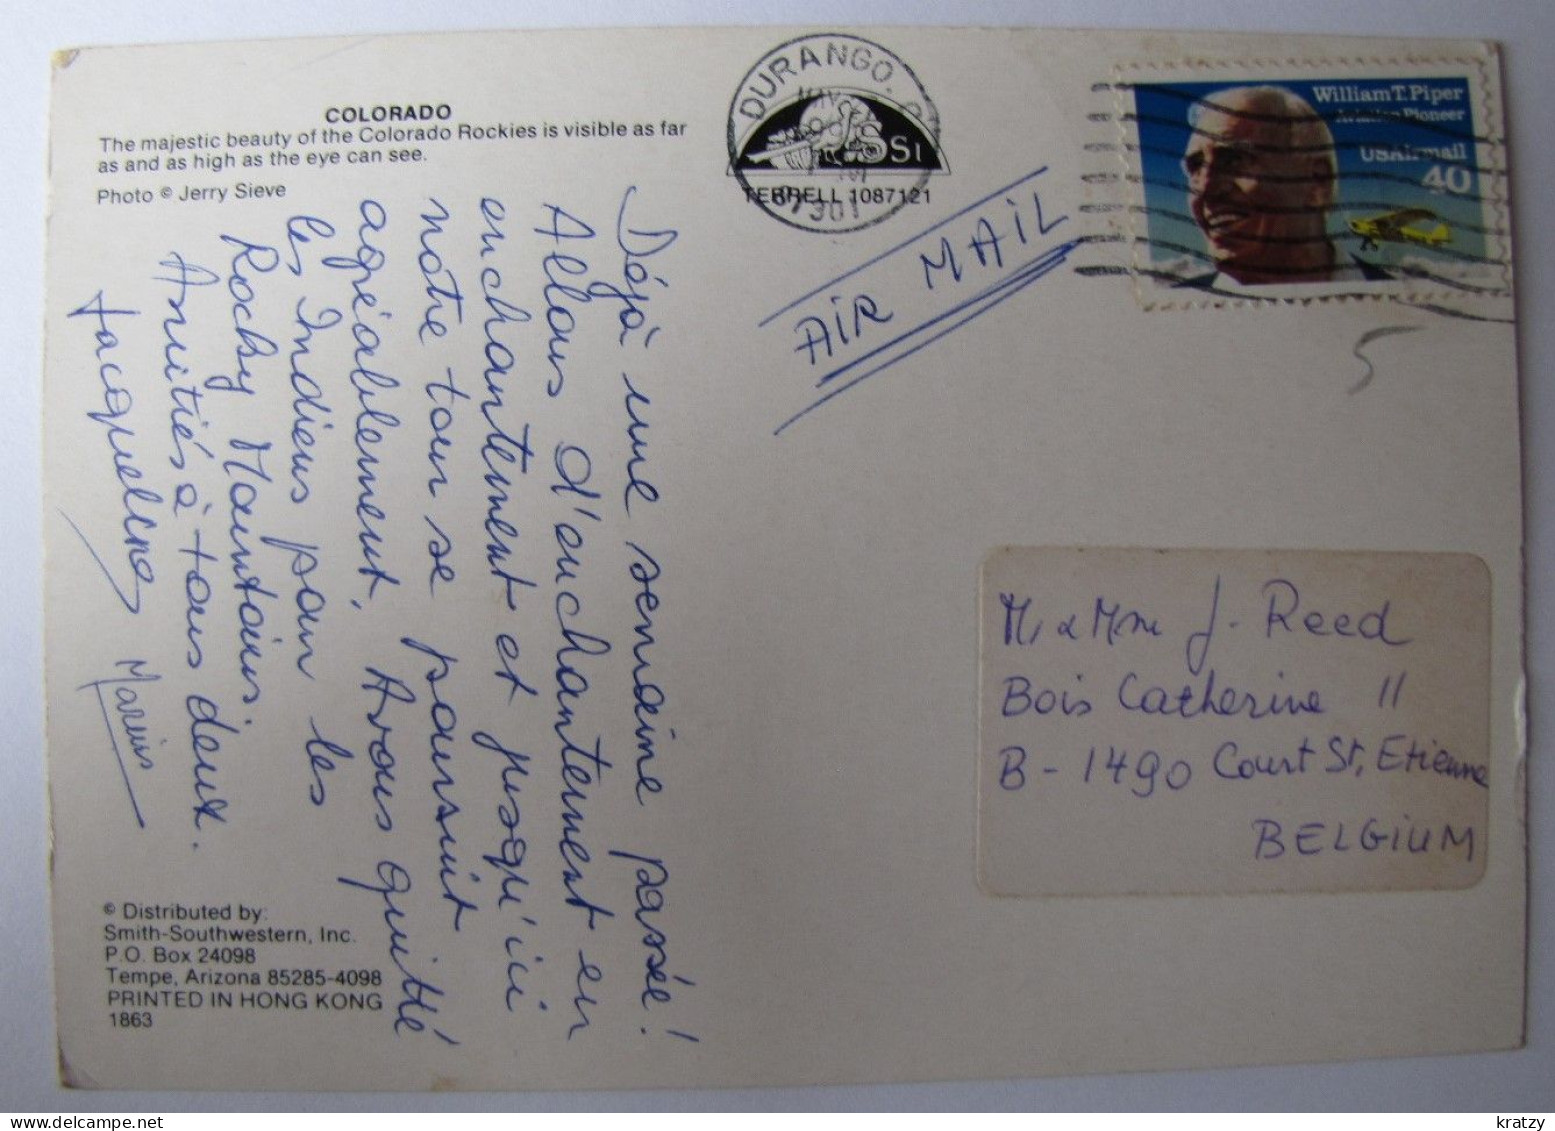 COLORADO
The majestic beauty of the Colorado Rockies is visible as far
as and as high as the eye can see.
Photo © Jerry Sieve
Déjà une semaine passée!
Allons d'enchantement en
enchantement et jusqu'ici
notre tour se poursuit
agréablement. Avons quitté
les Indiens pour les
Rocky Mountains.
Amitiés à tous deux.
Jacqueline
Marius
© Distributed by:
Smith-Southwestern, Inc.
P.O. Box 24098
Tempe, Arizona 85285-4098
PRINTED IN HONG KONG
1863
DURANGO, CO
81301
SSI
TERRELL 1087121
AIR MAIL
William T. Piper
Aviation Pioneer
USAirmail
40
5
M. & Mme J. Reed
Bois Catherine 11
B-1490 Court St, Etienne
BELGIUM
delcampe.net
kratzy